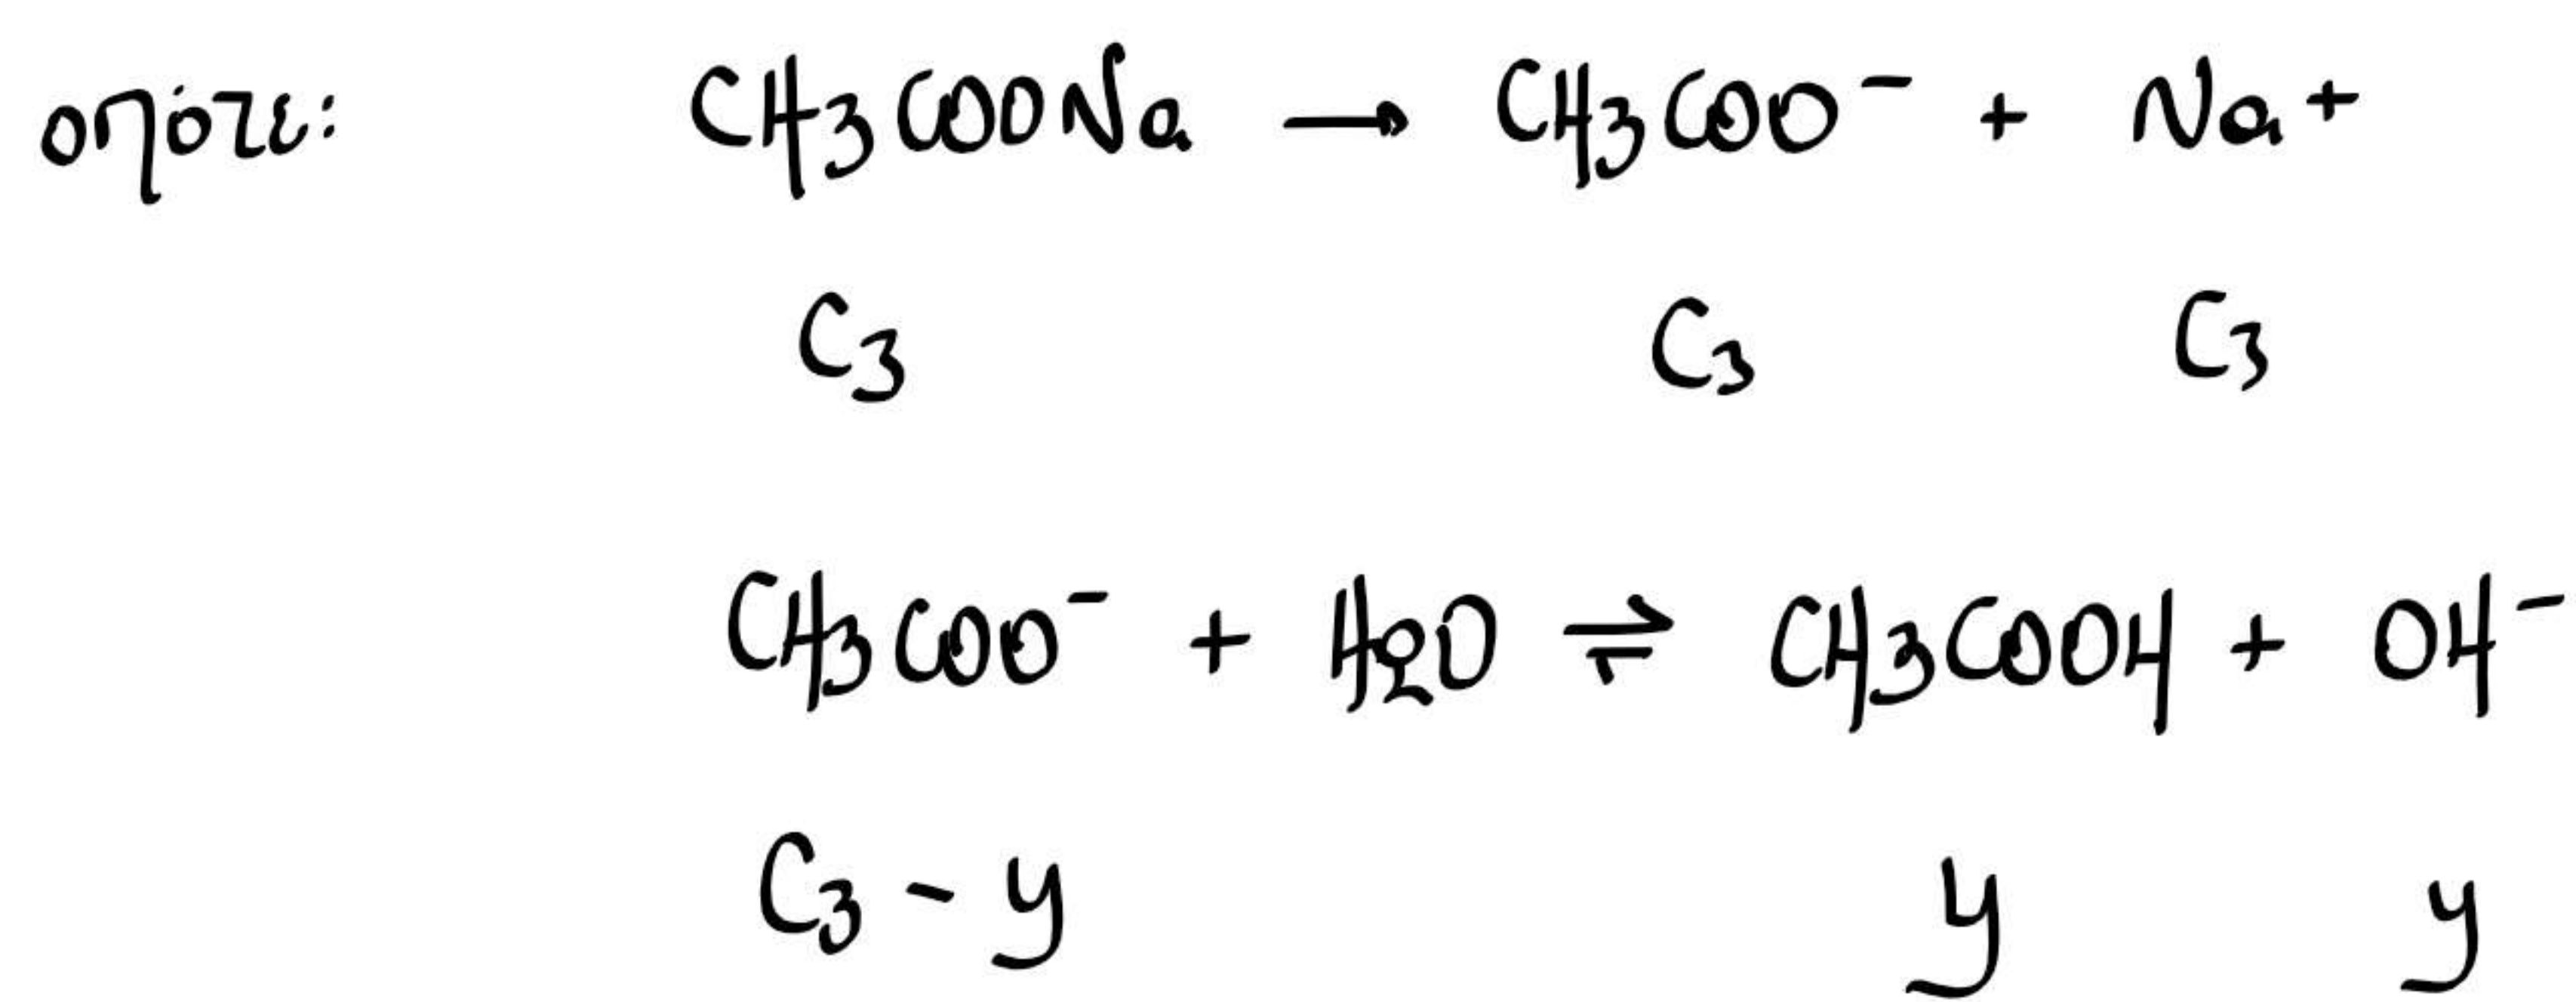 οπότε: CH3COONa → CH3COO⁻ + Na⁺
C3 C3 C3
CH3COO⁻ + H2O ⇌ CH3COOH + OH⁻
C3 - y y y